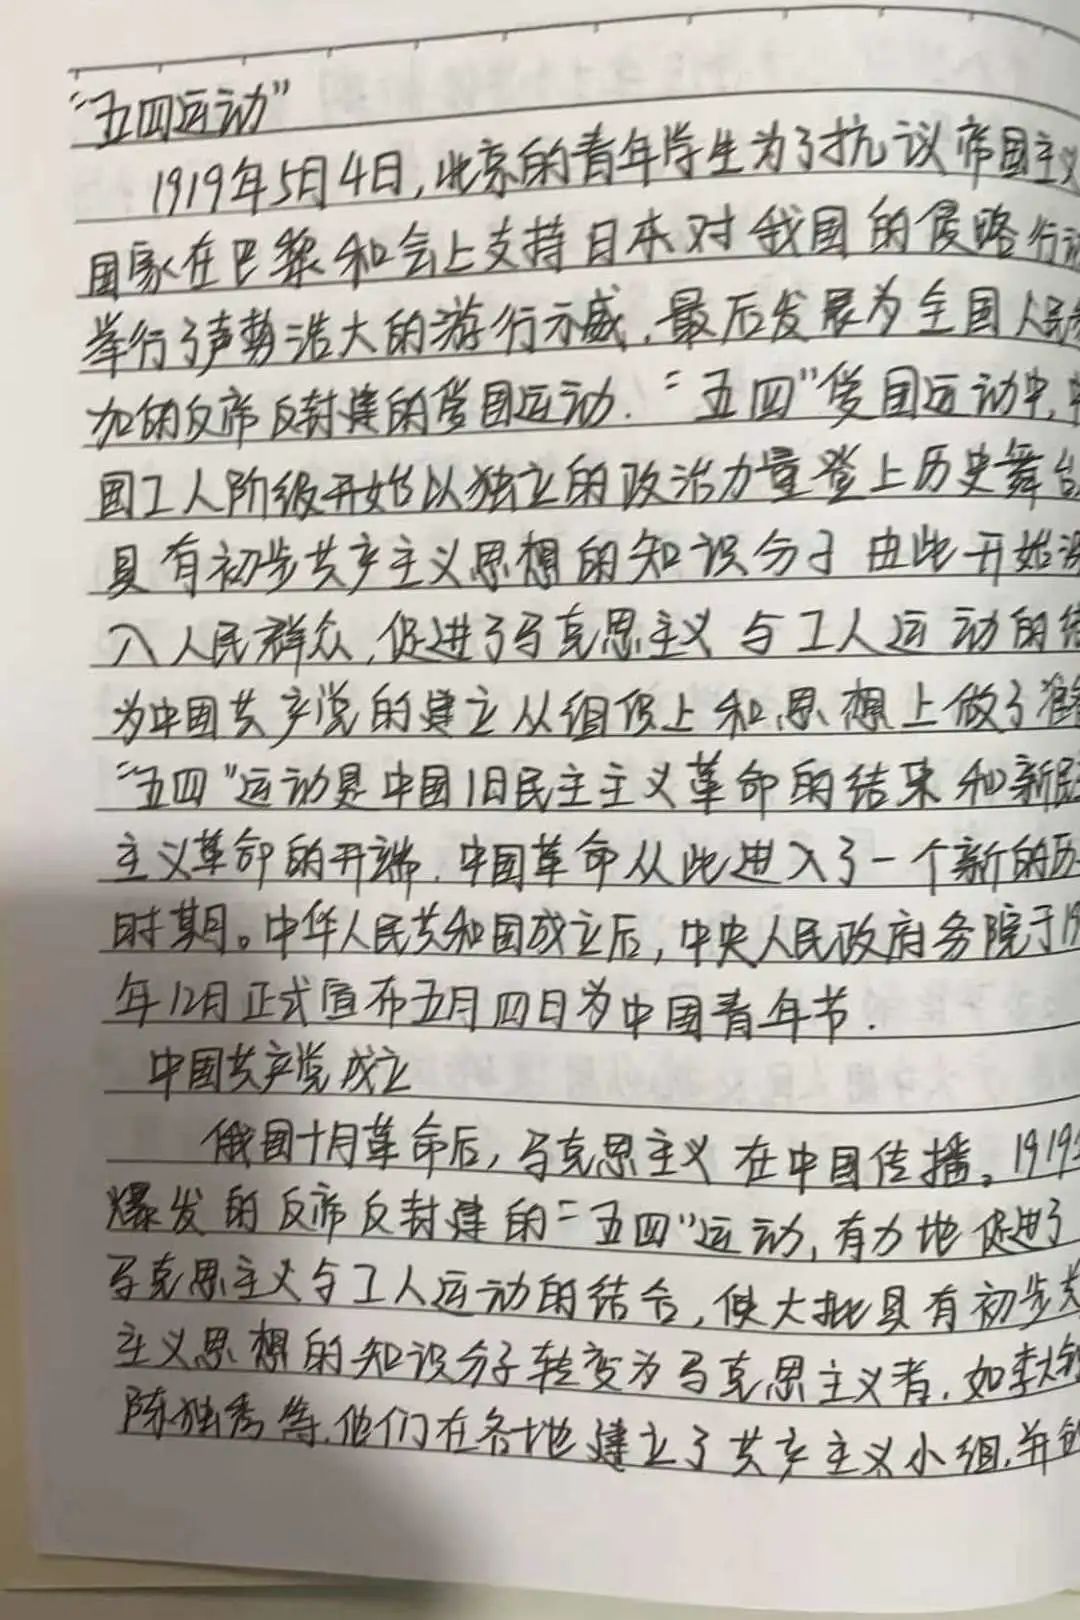 “五四运动”
1919年5月4日,北京的青年学生为了抗议帝国主义
国家在巴黎和会上支持日本对我国的侵略行
举行了声势浩大的游行示威,最后发展为全国人民
加的反帝反封建的爱国运动.“五四”爱国运动中,中
国工人阶级开始以独立的政治力量登上历史舞台
具有初步共产主义思想的知识分子由此开始深
入人民群众,促进了马克思主义与工人运动的结
为中国共产党的建立从组织上和思想上做了准
“五四”运动是中国旧民主主义革命的结束和新民
主义革命的开端.中国革命从此进入了一个新的历
时期。中华人民共和国成立后,中央人民政府务院于19
年12月正式宣布五月四日为中国青年节.
中国共产党成立
俄国十月革命后,马克思主义在中国传播。1919
爆发的反帝反封建的“五四”运动,有力地促进了
马克思主义与工人运动的结合,使大批具有初步共
主义思想的知识分子转变为马克思主义者.如李大钊
陈独秀等.他们在各地建立了共产主义小组.并